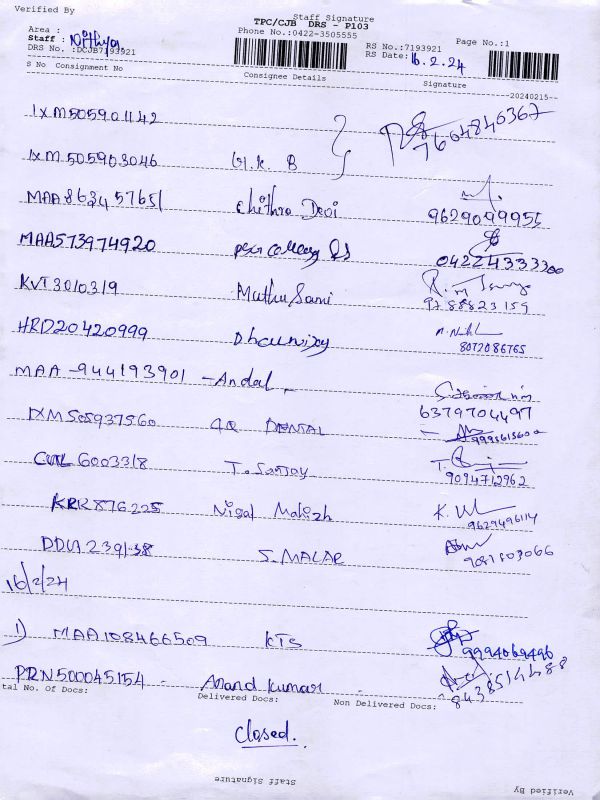 Verified By
Staff Signature
TPC/CJB DRS - P103
Area :
Phone No.:0422-3505555
Staff : Nithya
Page No.:1
RS No.:7193921
DRS No. :DCJB7193921
RS Date: 16.2.24
S No Consignment No
Consignee Details
Signature
--20240215--
IXM505901142
7604840367
IXM505903046 G.K B
MAA863457651 Chithra Devi
9629099955
MAA573974920
04224333300
KVT3010319 Muthu Sami
9788823159
HRD20420999
8072086765
MAA-944193901 - Andal
6379704497
IXM505937560 DENTAL
9995615600
6003318 T. Sanjoy
9094712962
KRK876225 Nisal Makizh
9629496114
S. MALAR
9087803066
16/2/24
1) MAA108466509 KTS
9994069496
PRN500045154 - Anand kumar
8438514488
tal No. Of Docs:
Delivered Docs:
Non Delivered Docs:
Closed.
Staff Signature
Verified By